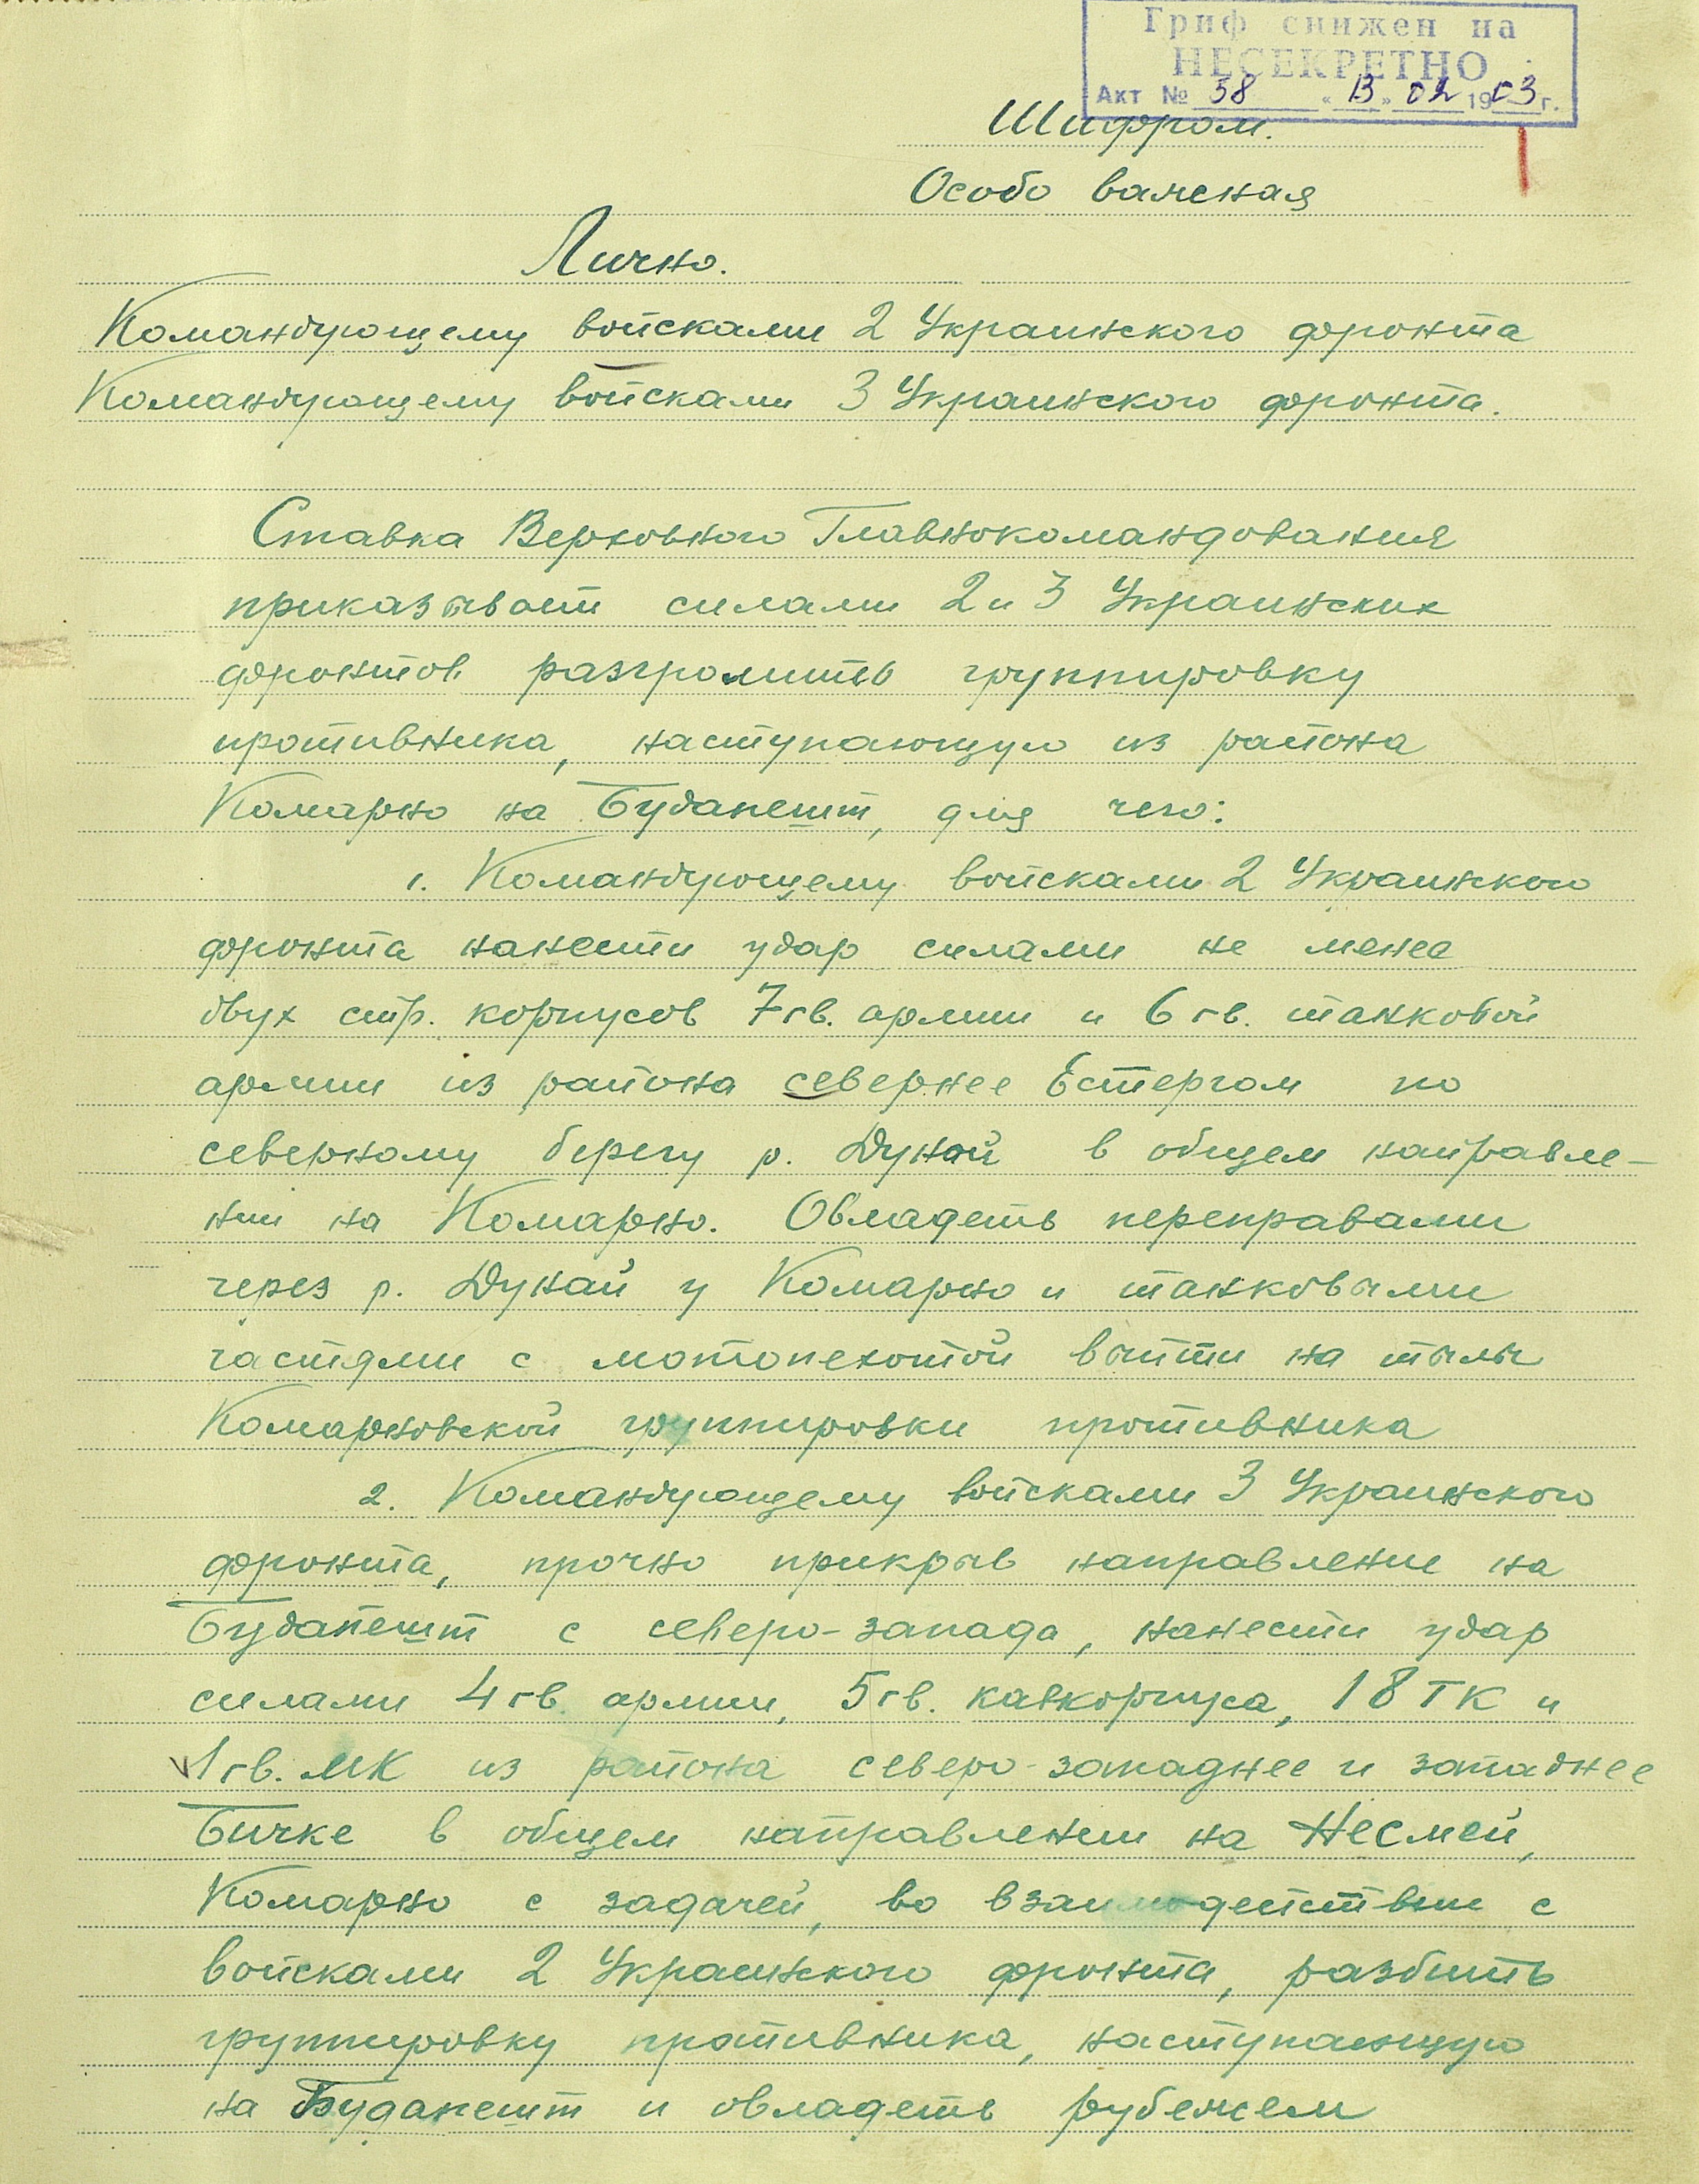 Гриф снижен на
НЕСЕКРЕТНО
Акт № 58 «13» 02 1903 г.
Шифром.
Особо важная
Лично.
Командующему войсками 2 Украинского фронта
Командующему войсками 3 Украинского фронта.
Ставка Верховного Главнокомандования
приказывает силами 2 и 3 Украинских
фронтов разгромить группировку
противника, наступающую из района
Комарно на Будапешт, для чего:
1. Командующему войсками 2 Украинского
фронта нанести удар силами не менее
двух стр. корпусов 7 гв. армии и 6 гв. танковой
армии из района севернее Естергом по
северному берегу р. Дунай в общем направле-
нии на Комарно. Овладеть переправами
через р. Дунай у Комарно и танковыми
частями с мотопехотой выйти на тылы
Комарновской группировки противника
2. Командующему войсками 3 Украинского
фронта, прочно прикрыв направление на
Будапешт с северо-запада, нанести удар
силами 4 гв. армии, 5 гв. кавкорпуса, 18 ТК и
1 гв. МК из района северо-западнее и западнее
Бичке в общем направлении на Несмей,
Комарно с задачей, во взаимодействии с
войсками 2 Украинского фронта, разбить
группировку противника, наступающую
на Будапешт и овладеть рубежем